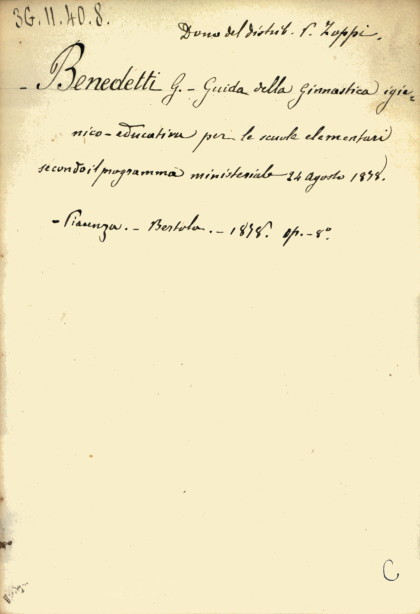 3G.11.40.8.
Dono del distrib. P. Zoppi.
- Benedetti G. - Guida della Ginnastica igie=
nico-educativa per le scuole elementari
secondo il programma ministeriale 24 agosto 1878.
- Piacenza. - Bertola. - 1878. op. - 8°.
C